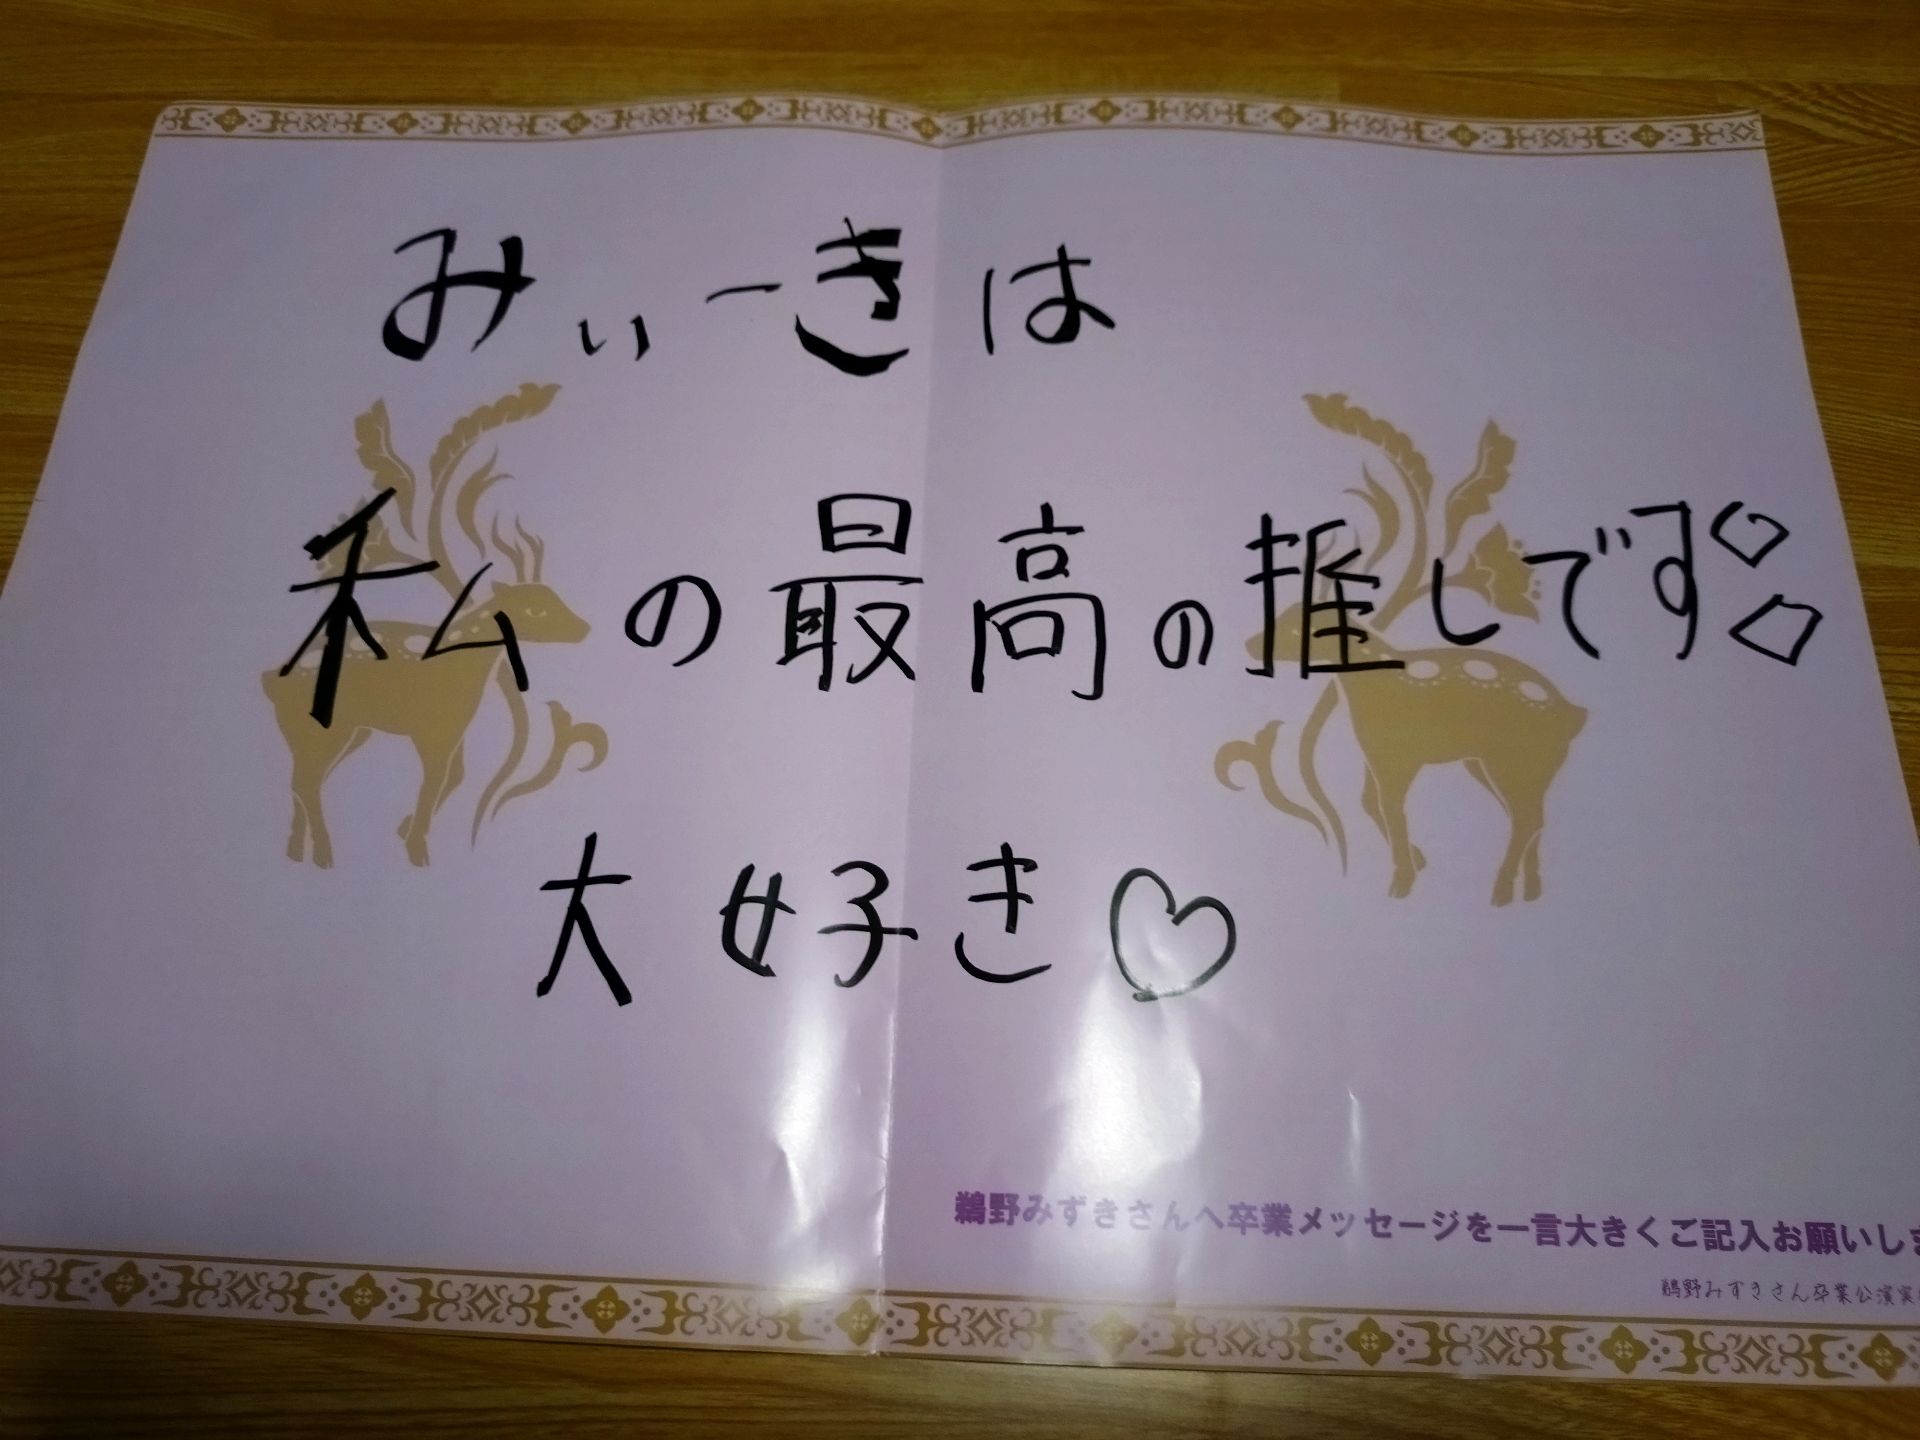 みぃーきは
私の最高の推しです◇◇
大好き♡
鵜野みずきさんへ卒業メッセージを一言大きくご記入お願いしま
鵜野みずきさん卒業公演実